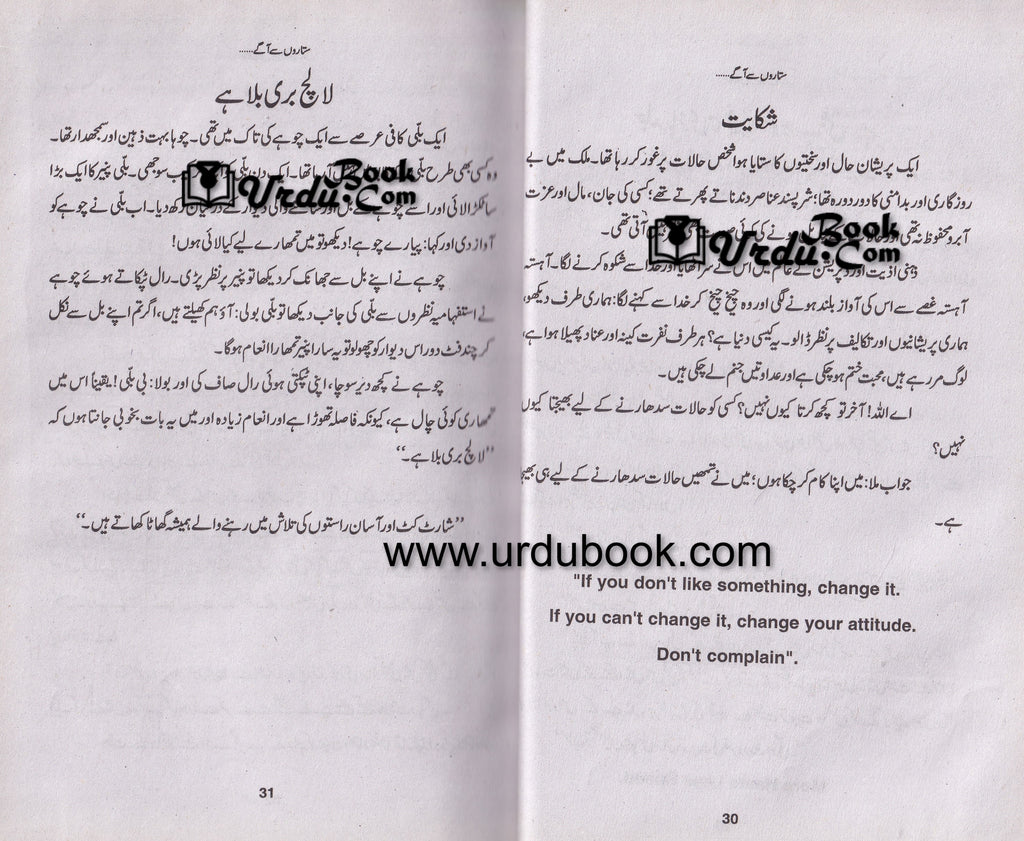 ستاروں سے آگے......
شکایت
ایک پریشان حال اور سختیوں کا ستایا ہوا شخص حالات پر غور کر رہا تھا۔ ملک میں بے
روزگاری اور بدامنی کا دور دورہ تھا؛ شرپسند عناصر دندناتے پھرتے تھے؛ کسی کی جان، مال اور عزت
آبرو محفوظ نہ تھی اور آتی تھی۔
ذہنی اذیت اور ڈپریشن کے عالم میں اس نے سر اٹھایا اور خدا سے شکوہ کرنے لگا۔ آہستہ
آہستہ غصے سے اس کی آواز بلند ہونے لگی اور وہ چیخ چیخ کر خدا سے کہنے لگا: ہماری طرف دیکھو،
ہماری پریشانیوں اور تکالیف پر نظر ڈالو۔ یہ کیسی دنیا ہے؟ ہر طرف نفرت کینہ اور عناد پھیلا ہوا ہے،
لوگ مر رہے ہیں، محبت ختم ہو چکی ہے اور عداوتیں جنم لے چکی ہیں۔
اے اللہ! آخر تو کچھ کرتا کیوں نہیں؟ کسی کو حالات سدھارنے کے لیے بھیجتا کیوں
نہیں؟
جواب ملا: میں اپنا کام کر چکا ہوں؛ میں نے تمھیں حالات سدھارنے کے لیے ہی بھیجا
ہے۔
"If you don't like something, change it.
If you can't change it, change your attitude.
Don't complain".
30
ستاروں سے آگے......
لالچ بری بلا ہے
ایک بلّی کافی عرصے سے ایک چوہے کی تاک میں تھی۔ چوہا بہت ذہین اور سمجھدار تھا۔
وہ کسی بھی طرح بلّی آ رہا تھا۔ ایک دن بلّی سوجھی۔ بلّی پنیر کا ایک بڑا
سا ٹکڑا لائی اور اسے چوہے کے بل اور سامنے والی دیوار کے درمیان رکھ دیا۔ اب بلّی نے چوہے کو
آواز دی اور کہا: پیارے چوہے! دیکھو تو میں تمھارے لیے کیا لائی ہوں!
چوہے نے اپنے بل سے جھانک کر دیکھا تو پنیر پر نظر پڑی۔ رال ٹپکاتے ہوئے چوہے
نے استفہامیہ نظروں سے بلّی کی جانب دیکھا تو بلّی بولی: آؤ ہم کھیلتے ہیں، اگر تم اپنے بل سے نکل
کر چند فٹ دور اس دیوار کو چھو لو تو یہ سارا پنیر تمھارا انعام ہوگا۔
چوہے نے کچھ دیر سوچا، اپنی ٹپکتی ہوئی رال صاف کی اور بولا: بی بلّی! یقیناً اس میں
تمھاری کوئی چال ہے، کیونکہ فاصلہ تھوڑا ہے اور انعام زیادہ اور میں یہ بات بخوبی جانتا ہوں کہ
”لالچ بری بلا ہے۔“
”شارٹ کٹ اور آسان راستوں کی تلاش میں رہنے والے ہمیشہ گھاٹا کھاتے ہیں۔“
31
Urdu Book .Com
Urdu Book .Com
www.urdubook.com